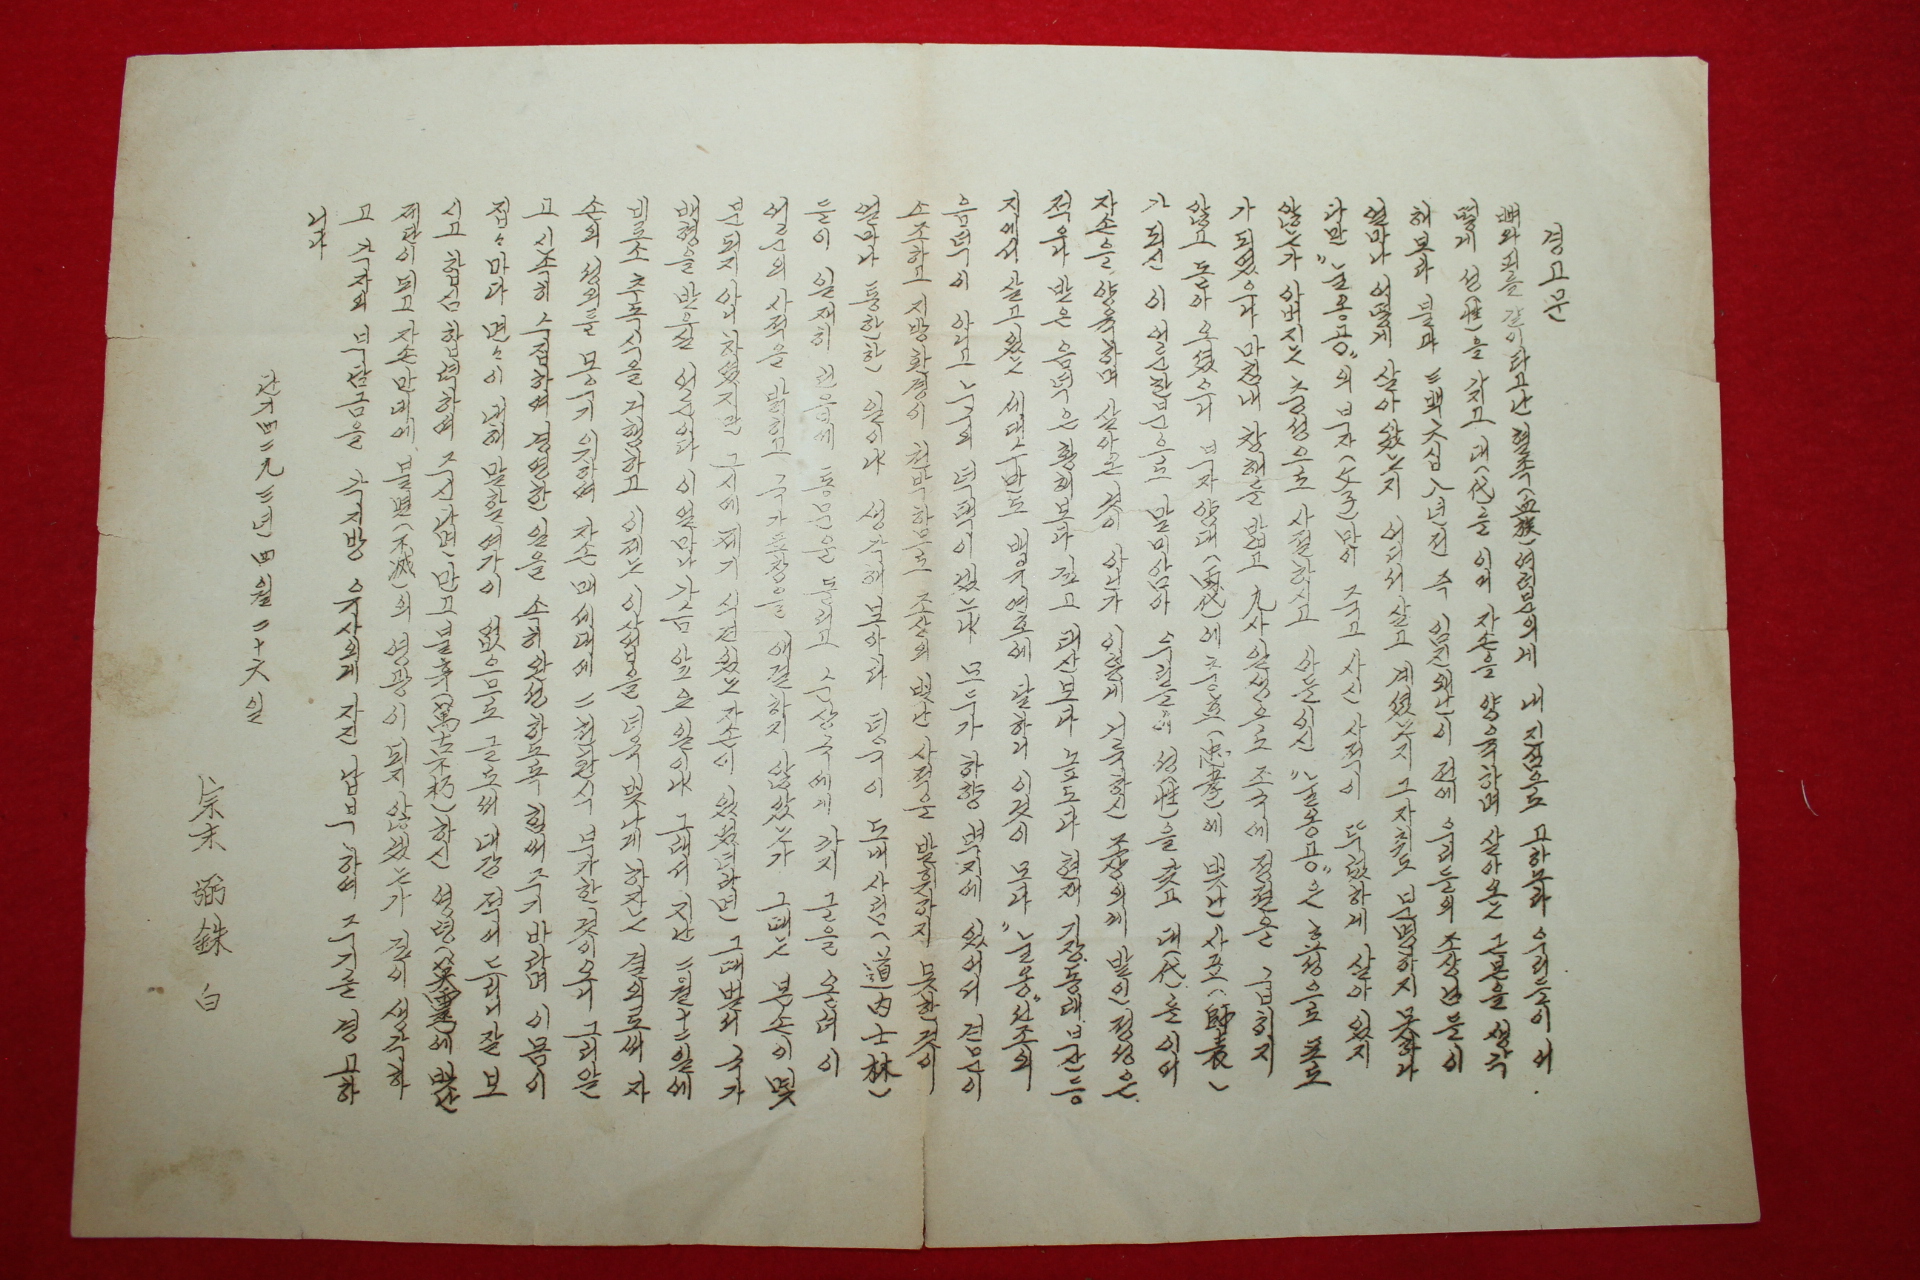 경고문
뼈와 피를 같이 타고난 혈족(血族) 여러분의게 내 진심으로 고하노라 우리들이 어
떻게 성(姓)을 가지고 대(代)를 이어 자손을 양육하며 살아오는 근본을 생각
해보라 불과 三百六십八년전 즉 임진왜란이 전에 우리들의 조상님들이
얼마나 어떻게 살아왔는지 어디서 살고 계셨는지 그 자취도 분명하지 못하고
다만 "눌옹공"의 부자(父子)만이 죽고 사신 사적이 뚜렸하게 살아 있지
않는가 아버지는 충성으로 사절하시고 아들이신 "눌옹공"은 효성으로 포로
가 되였으나 마침내 창해를 밟고 九사일생으로 조국에 정절은 굽히지
않고 돌아 오셨으니 부자 양대(兩代)에 충효(忠孝)에 빛난 사표(師表)
가 되신 이 어른 한분으로 말미암아 우리들의 성(姓)을 찾고 대(代)를 이어
자손을 양육하며 살아온 것이 아닌가 이렇게 거룩하신 조상의게 받인 정성은
적으나 받은 음덕은 황해보다 깊고 태산보다 높도다 현재 기장 동래 부산 등
지에서 살고 있는 세대수만도 백수여호에 달하니 이것이 모다 "눌옹"선조의
음덕이 아니고 누구의 덕택이 있는냐 모두가 하향 벽지에 있어서 견문이
소조하고 지방환경이 천박하므로 조상의 빛난 사적을 발휘하지 못한 것이
얼마나 통한한 일이냐 생각해 보아라 다행이 도내사림(道內士林)
들이 일제히 번읍에 통문을 돌리고 손상국에게 까지 글을 올려 이
어른의 사적을 밝히고 국가포창을 애걸하지 않았는가 그때는 본손이 몇
분되지 아니하였지만 구시에 제기 식견있는 자손이 있었더라면 그때 벌써 국가
배령을 받으실 어른이다 이 얼마나 가슴 앞은 일이냐 그래서 지난 二월 十二일에
비로소 추모식을 거행하고 이제는 이 사업을 더욱 빛나게 하자는 결의로써 자
손의 성의를 몽구기 위하여 자손 매세대에 二천환식 부가한 것이오니 그리알
고 시속히 수집하여 경영한 일을 속히 완성하도록 힘써 주기 바라며 이 몸이
접々마다 면々이 대해 말할 여가이 없으므로 글로써 대강 적어 드리니 잘 보
시고 합심 합력하여 주신다면 만고불후(萬古不朽)하신 영령(英靈)에 빛난
제전이 되고 자손만대에 불멸(不滅)의 영광이 되지 않겠는가 깊이 생각하
고 각자의 부담금을 각 지방 유사의게 자진 납부하여 주기를 경고하
니다
단기四二九三년 四월 二十六일
宗末 弼銖 白